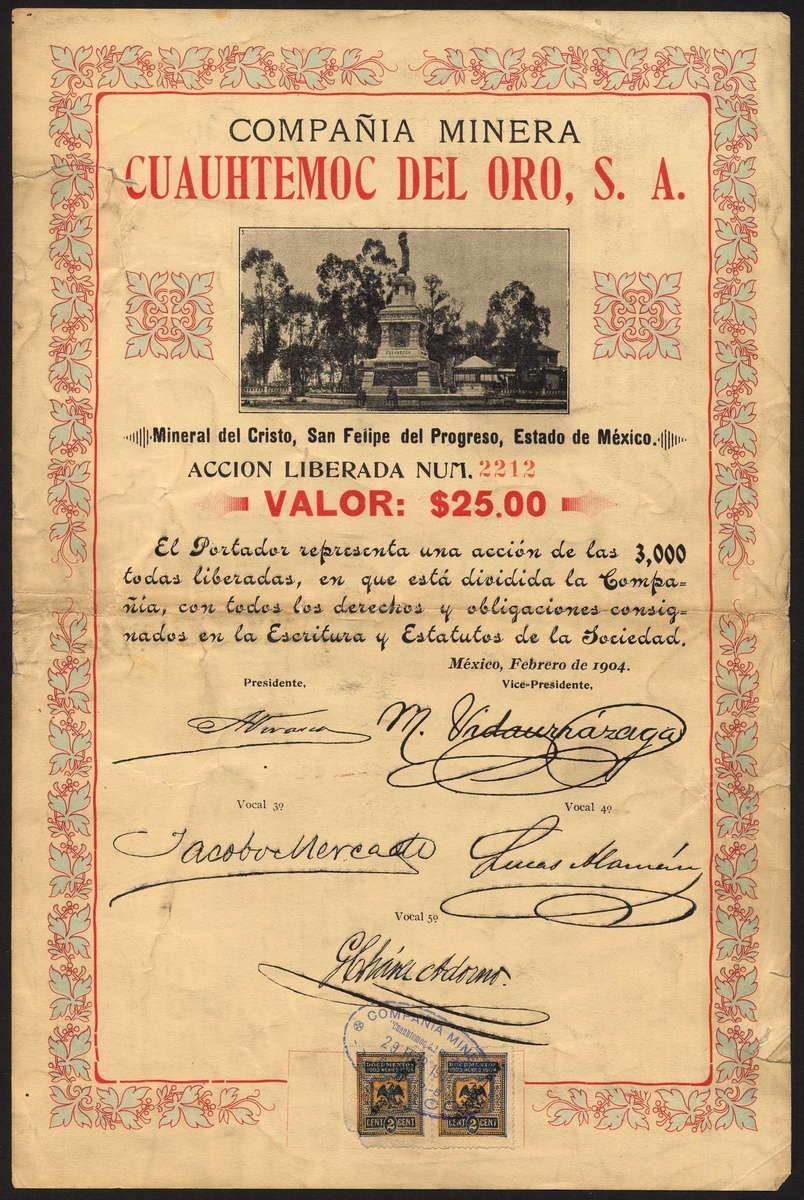 COMPAÑIA MINERA
CUAUHTEMOC DEL ORO, S. A.
Mineral del Cristo, San Felipe del Progreso, Estado de México.
ACCION LIBERADA NUM. 2212
VALOR: $25.00
El Portador representa una acción de las 3,000
todas liberadas, en que está dividida la Compa-
ñía, con todos los derechos y obligaciones consig-
nados en la Escritura y Estatutos de la Sociedad.
México, Febrero de 1904.
Presidente,
Vice-Presidente,
M. Vidaurrázaga
Vocal 3º
Vocal 4º
Jacobo Mercado
Lucas Alamán
Vocal 5º
G. Chávez Adorno.
COMPAÑIA MINE
"Cuauhtemoc
29
DOCUMENTOS
DOCUMENTOS
CENT 2 CENT
CENT 2 CENT